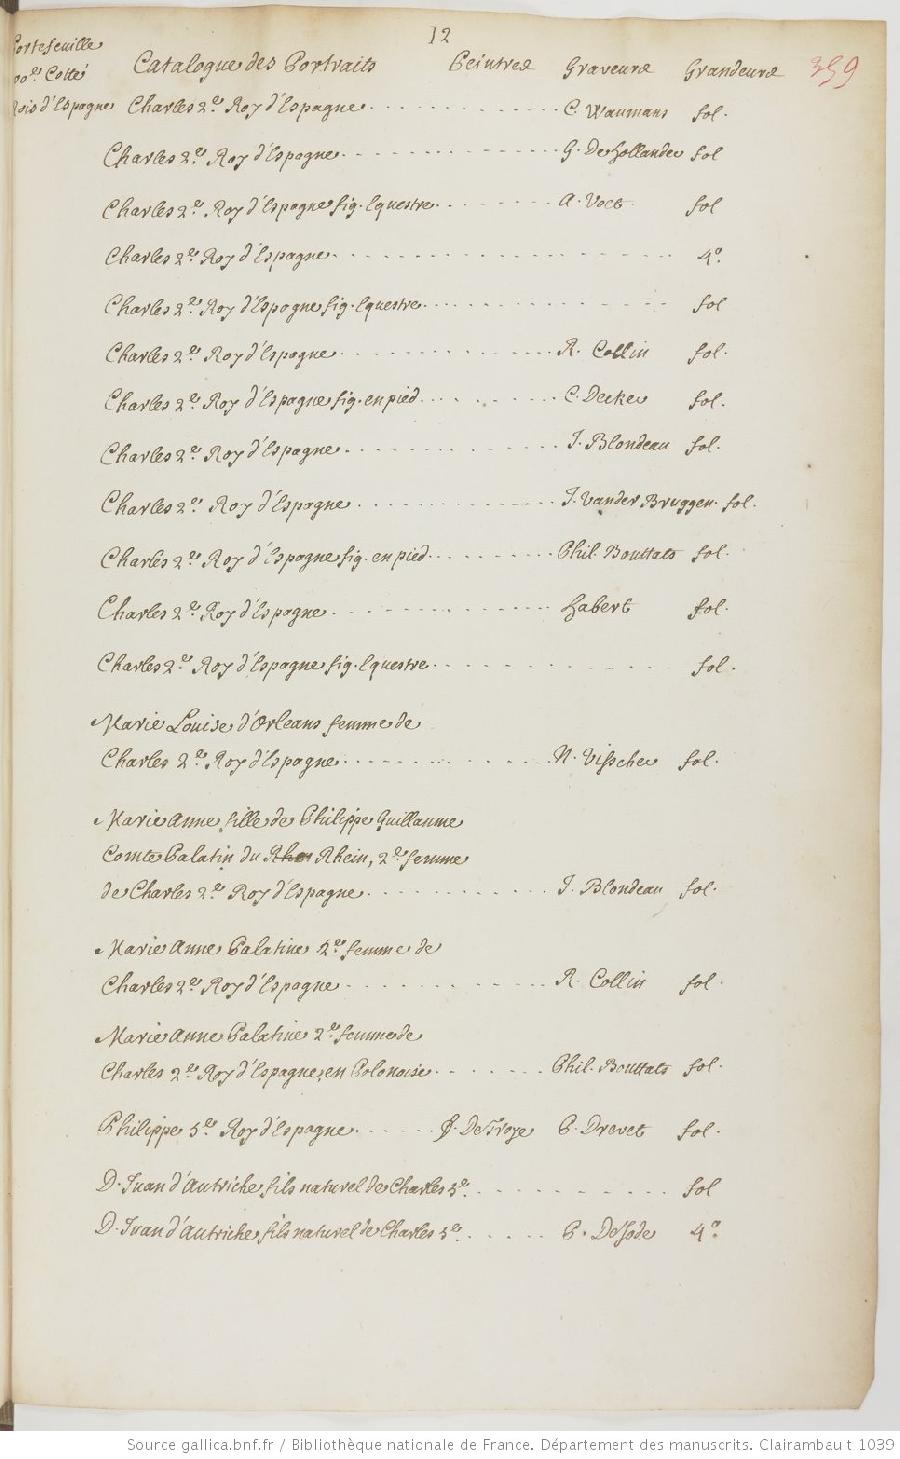 12
Portefeuille
Cotté Catalogue des Portraits Peintres Graveurs Grandeurs 359
Rois d'Espagne Charles 2.e Roy d'Espagne C. Waumans fol.
Charles 2.e Roy d'Espagne G. De Hollander fol
Charles 2.e Roy d'Espagne fig. Equestre A. Voet fol
Charles 2.e Roy d'Espagne 4.o
Charles 2.e Roy d'Espagne fig. Equestre fol
Charles 2.e Roy d'Espagne R. Collin fol.
Charles 2.e Roy d'Espagne fig. en pied C. Decker fol.
Charles 2.e Roy d'Espagne J. Blondeau fol.
Charles 2.e Roy d'Espagne J. Vander Bruggen fol.
Charles 2.e Roy d'Espagne fig. en pied Phil. Bouttats fol.
Charles 2.e Roy d'Espagne Habert fol.
Charles 2.e Roy d'Espagne fig. Equestre fol.
Marie Louise d'Orleans femme de
Charles 2.e Roy d'Espagne N. Visscher fol.
Marie Anne fille de Philippe Guillaume
Comte Palatin du Rhein, 2.e femme
de Charles 2.e Roy d'Espagne J. Blondeau fol.
Marie Anne Palatine 2.e femme de
Charles 2.e Roy d'Espagne R. Collin fol.
Marie Anne Palatine 2.e femme de
Charles 2.e Roy d'Espagne, en Polonoise Phil. Bouttats fol.
Philippe 5.e Roy d'Espagne f. De Troye P. Drevet fol.
D. Juan d'Autriche fils naturel de Charles 5.e fol
D. Juan d'Autriche fils naturel de Charles 5.e P. De Jode 4.o
Source gallica.bnf.fr / Bibliothèque nationale de France. Département des manuscrits. Clairambault 1039